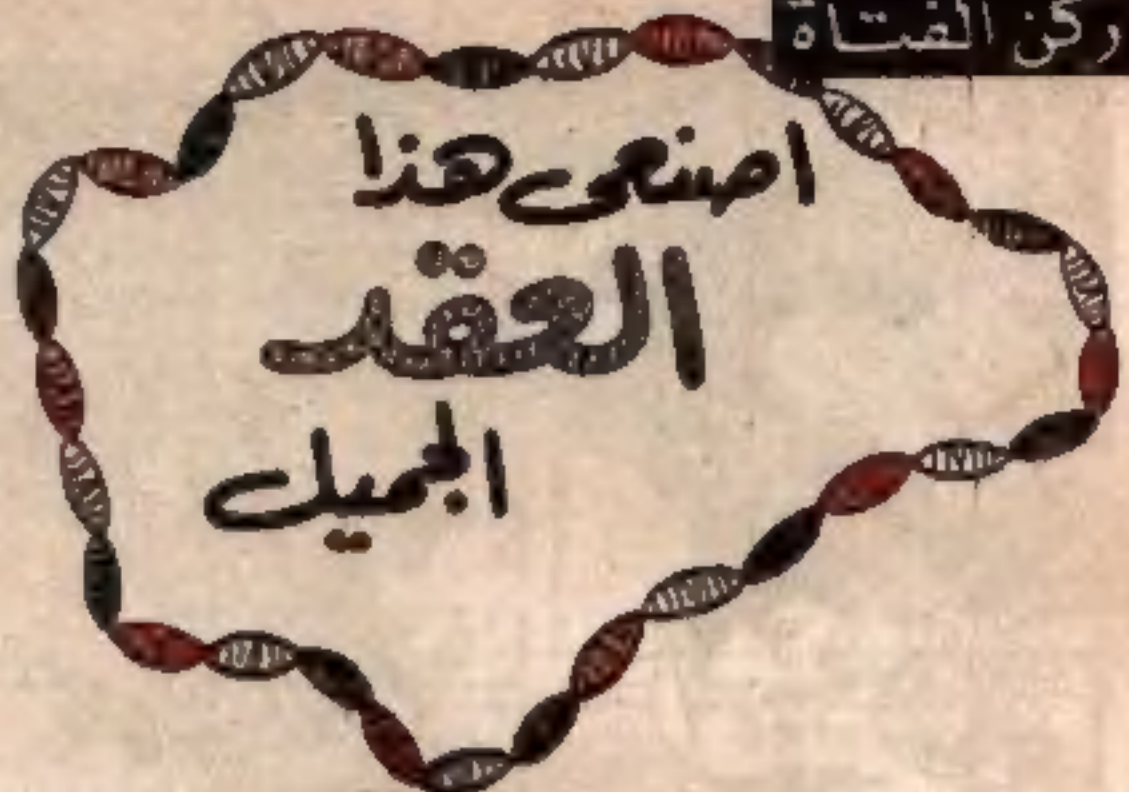 ركن الفتاة
اصنعى هذا
العقد
الجميل